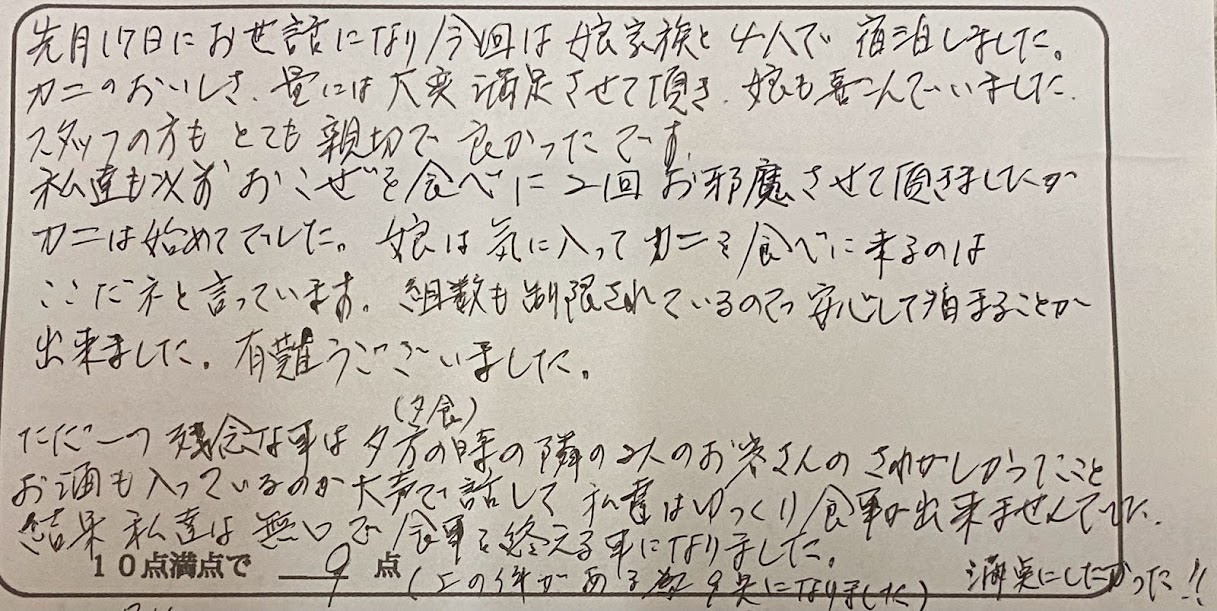 先月17日にお世話になり今回は娘家族と4人で宿泊しました。
カニのおいしさ、量には大変満足させて頂き、娘も喜こんでいました。
スタッフの方もとても親切で良かったです。
私達も以前おこぜを食べに2回お邪魔させて頂きましたが
カニは始めてでした。娘は気に入ってカニを食べに来るのは
ここだネと言っています。組数も制限されているので安心して泊まることが
出来ました。有難うございました。
(夕食)
ただ一つ残念な事は夕方の時の隣の2人のお客さんのさわがしかったこと
お酒も入っているのか大声で話して私達はゆっくり食事が出来ませんでした。
結果私達は無口で食事を終える事になりました。
10点満点で 9 点
(上の件がある為9点になりました) 満点にしたかった!!